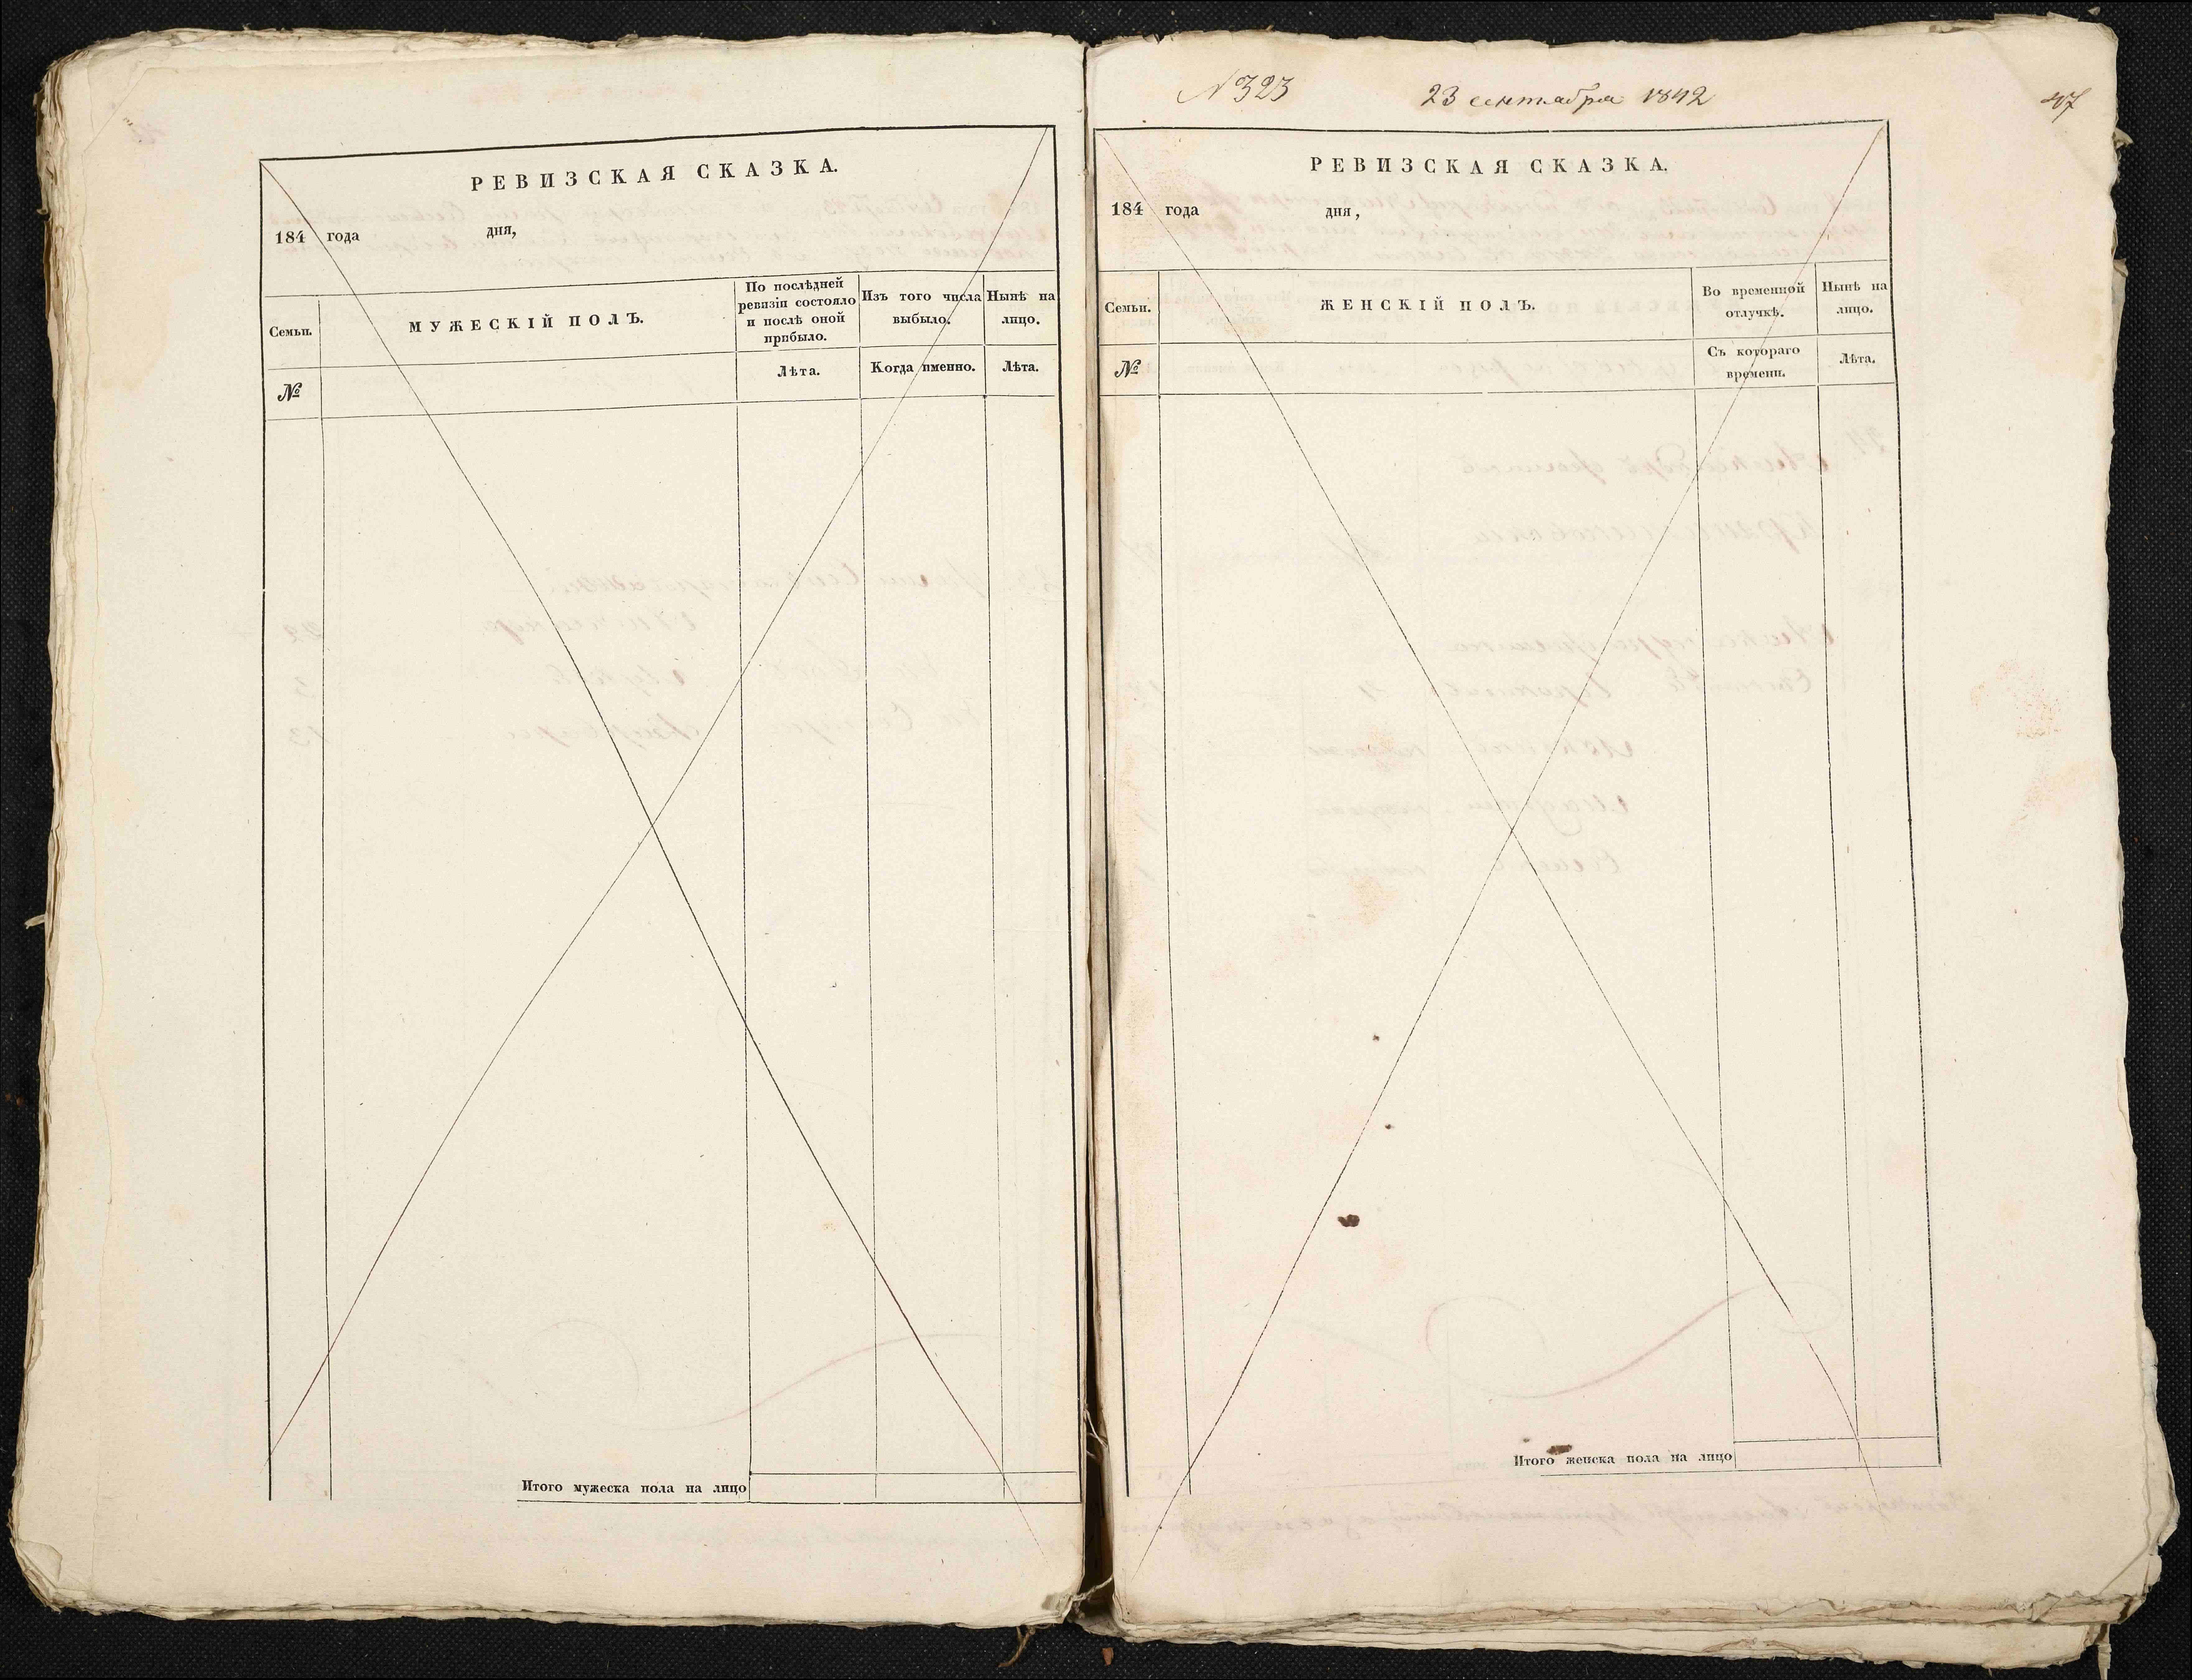 РЕВИЗСКАЯ СКАЗКА.
184 года дня,
Семьи.
МУЖЕСКІЙ ПОЛЪ.
По послѣдней ревизіи состояло и послѣ оной прибыло.
Изъ того числа выбыло.
Нынѣ на лицо.
№
Лѣта.
Когда именно.
Лѣта.
Итого мужеска пола на лицо
№ 323
23 сентября 1842
47
РЕВИЗСКАЯ СКАЗКА.
184 года дня,
Семьи.
ЖЕНСКІЙ ПОЛЪ.
Во временной отлучкѣ.
Нынѣ на лицо.
№
Съ котораго времени.
Лѣта.
Итого женска пола на лицо